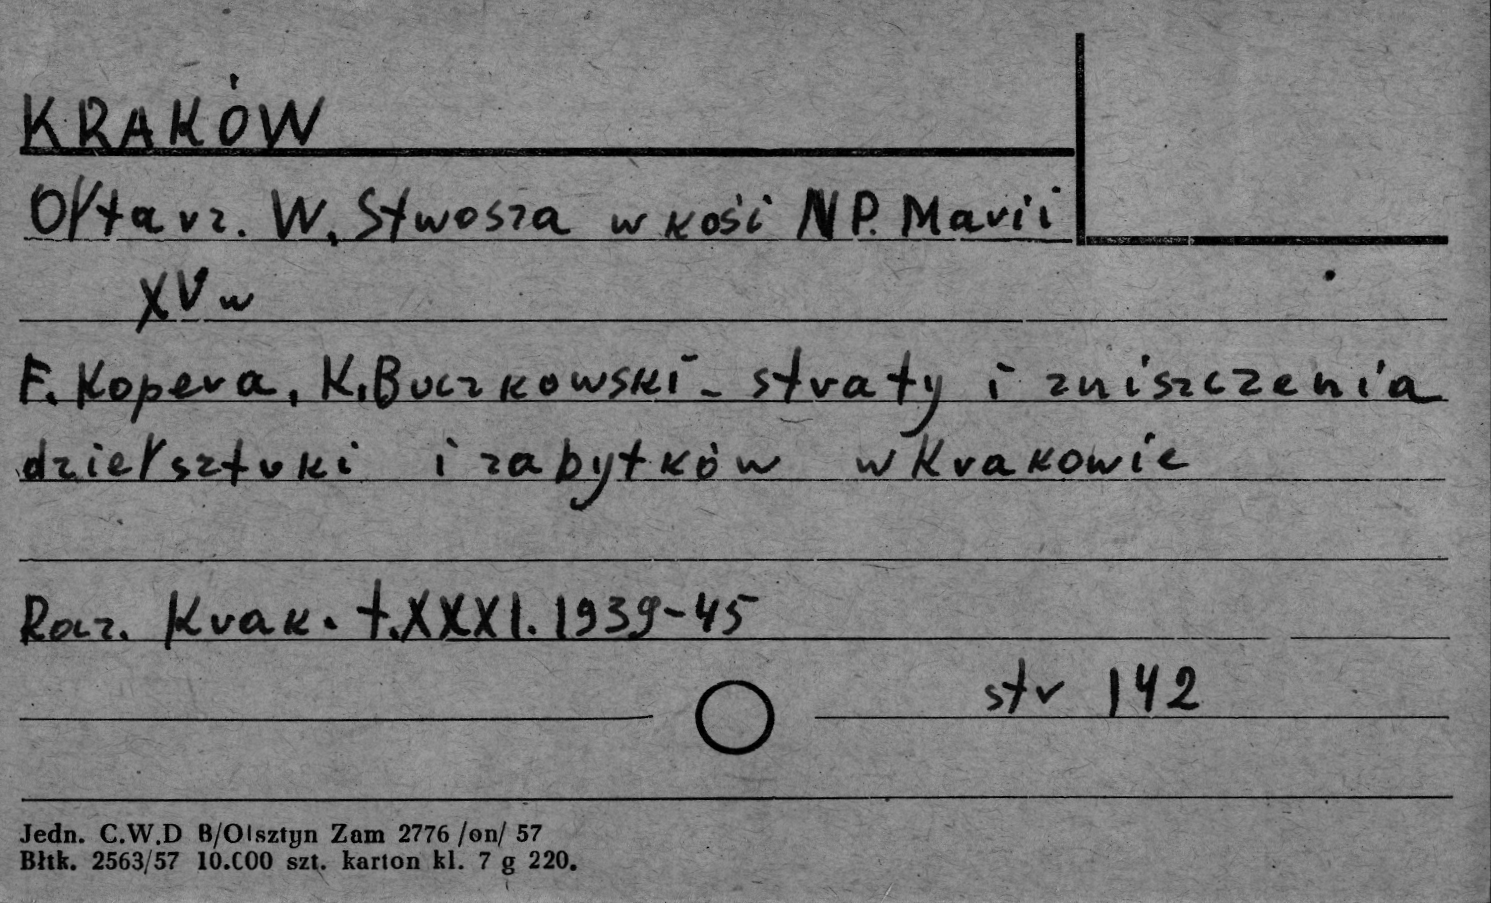 KRAKÓW
Ołtarz. W. Stwosza w kości NP. Marii
XV w
F. Kopera, K. Buczkowski - straty i zniszczenia
dzieł sztuki i zabytków w Krakowie
Rocz. Krak. t. XXXI. 1939-45
str 142
Jedn. C.W.D B/Olsztyn Zam 2776 /on/ 57
Błtk. 2563/57 10.000 szt. karton kl. 7 g 220.